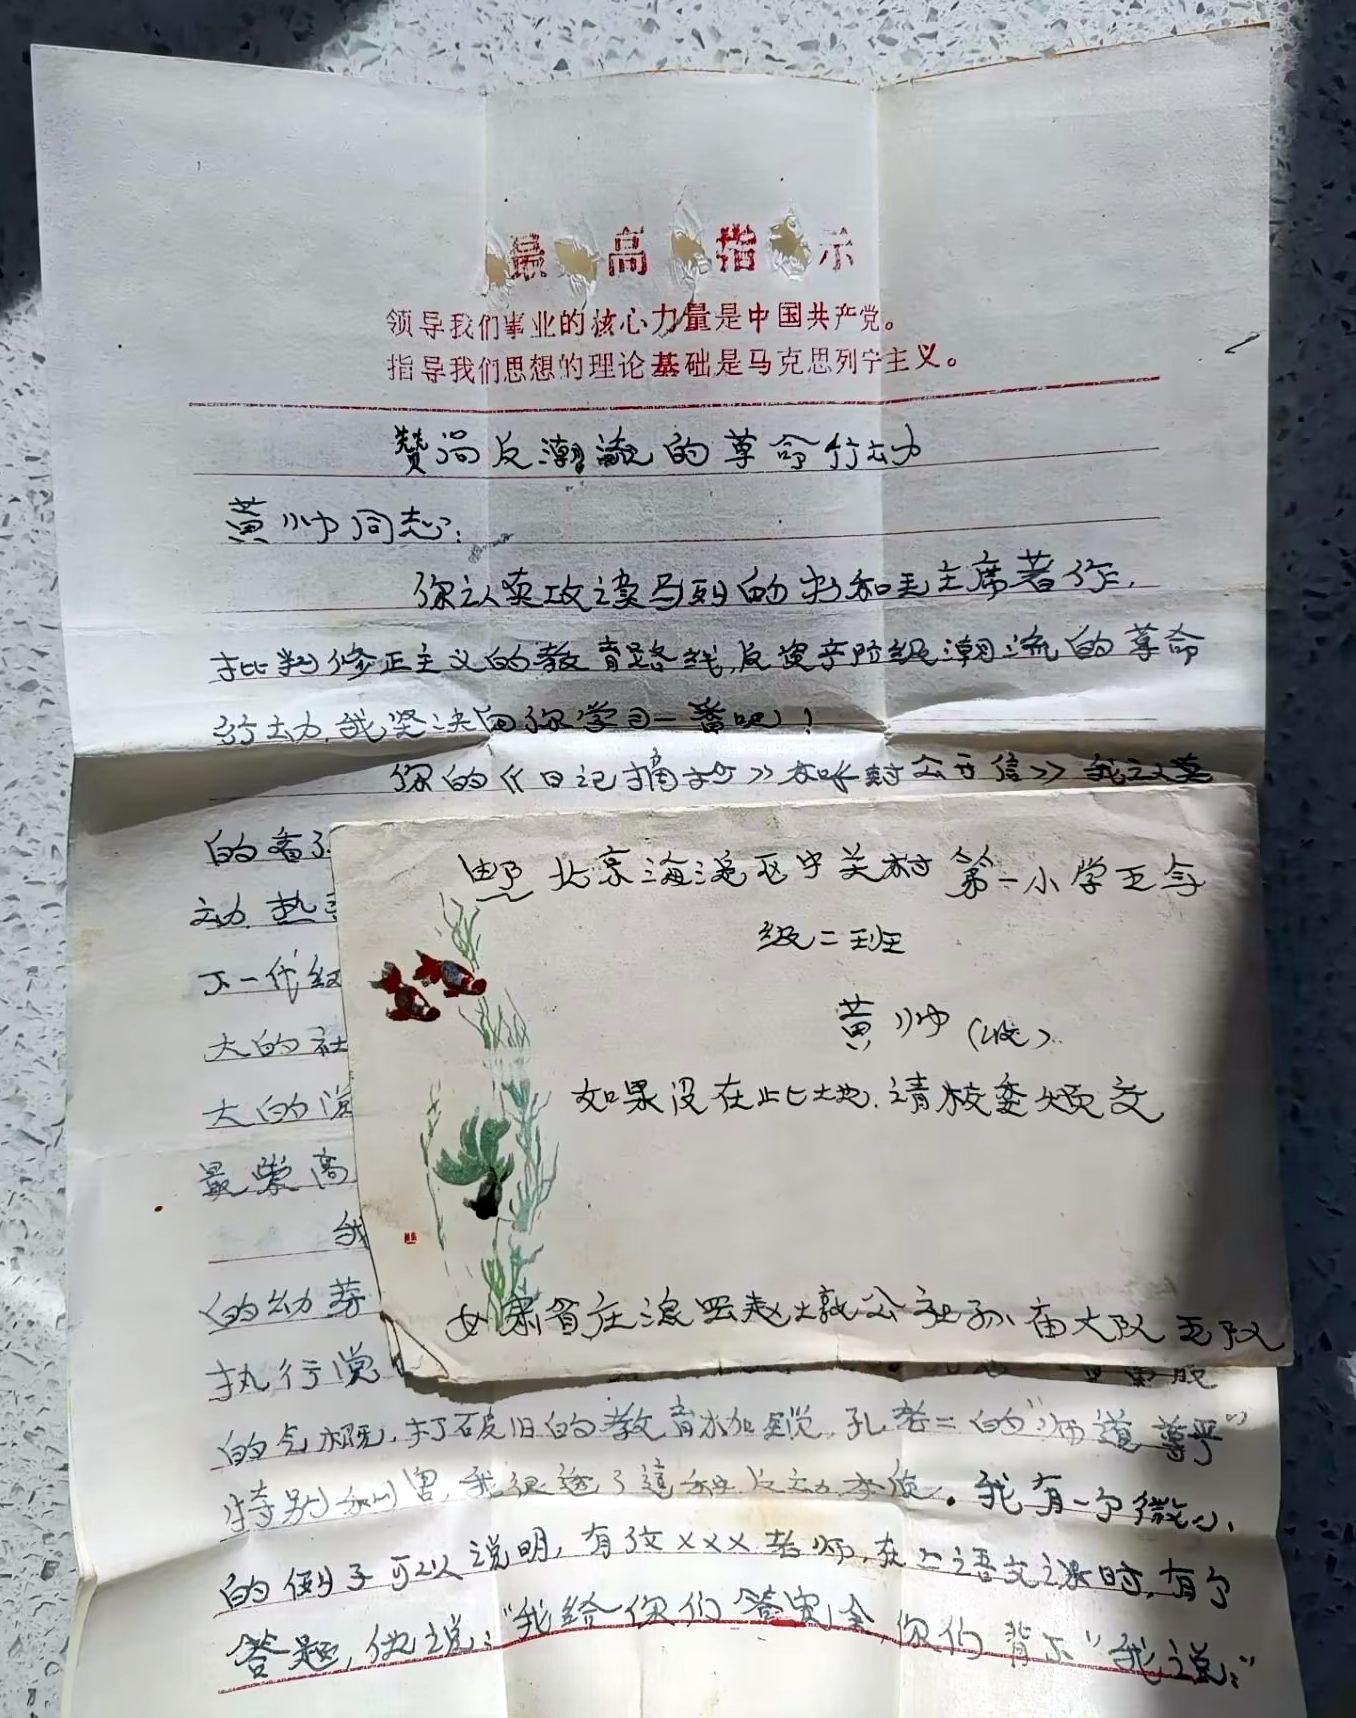 最高指示
领导我们事业的核心力量是中国共产党。
指导我们思想的理论基础是马克思列宁主义。
赞扬反潮流的革命行动
黄帅同志：
你认真攻读马列的书和毛主席著作，
批判修正主义的教育路线，反资产阶级潮流的革命
行动，我坚决向你学习一番吧！
你的《日记摘抄》和《一封公开信》我认真
的看了
动，热
下一代红
大的社
大的说
最崇高
我
的幼芽
执行党
邮 北京海淀区中关村第一小学五年
级二班
黄帅（收）
如果没在此地，请校委烦交
甘肃省庄浪县赵墩公社孙庙大队五队
的气概，打破旧的教育枷锁，孔老二的“师道尊严”
特别利害，我很透了这种反动本质。我有一个微小
的例子可以说明，有位×××老师，在上语文课时，有个
答题，他说：“我给你们答案全，你们背下”我说：“